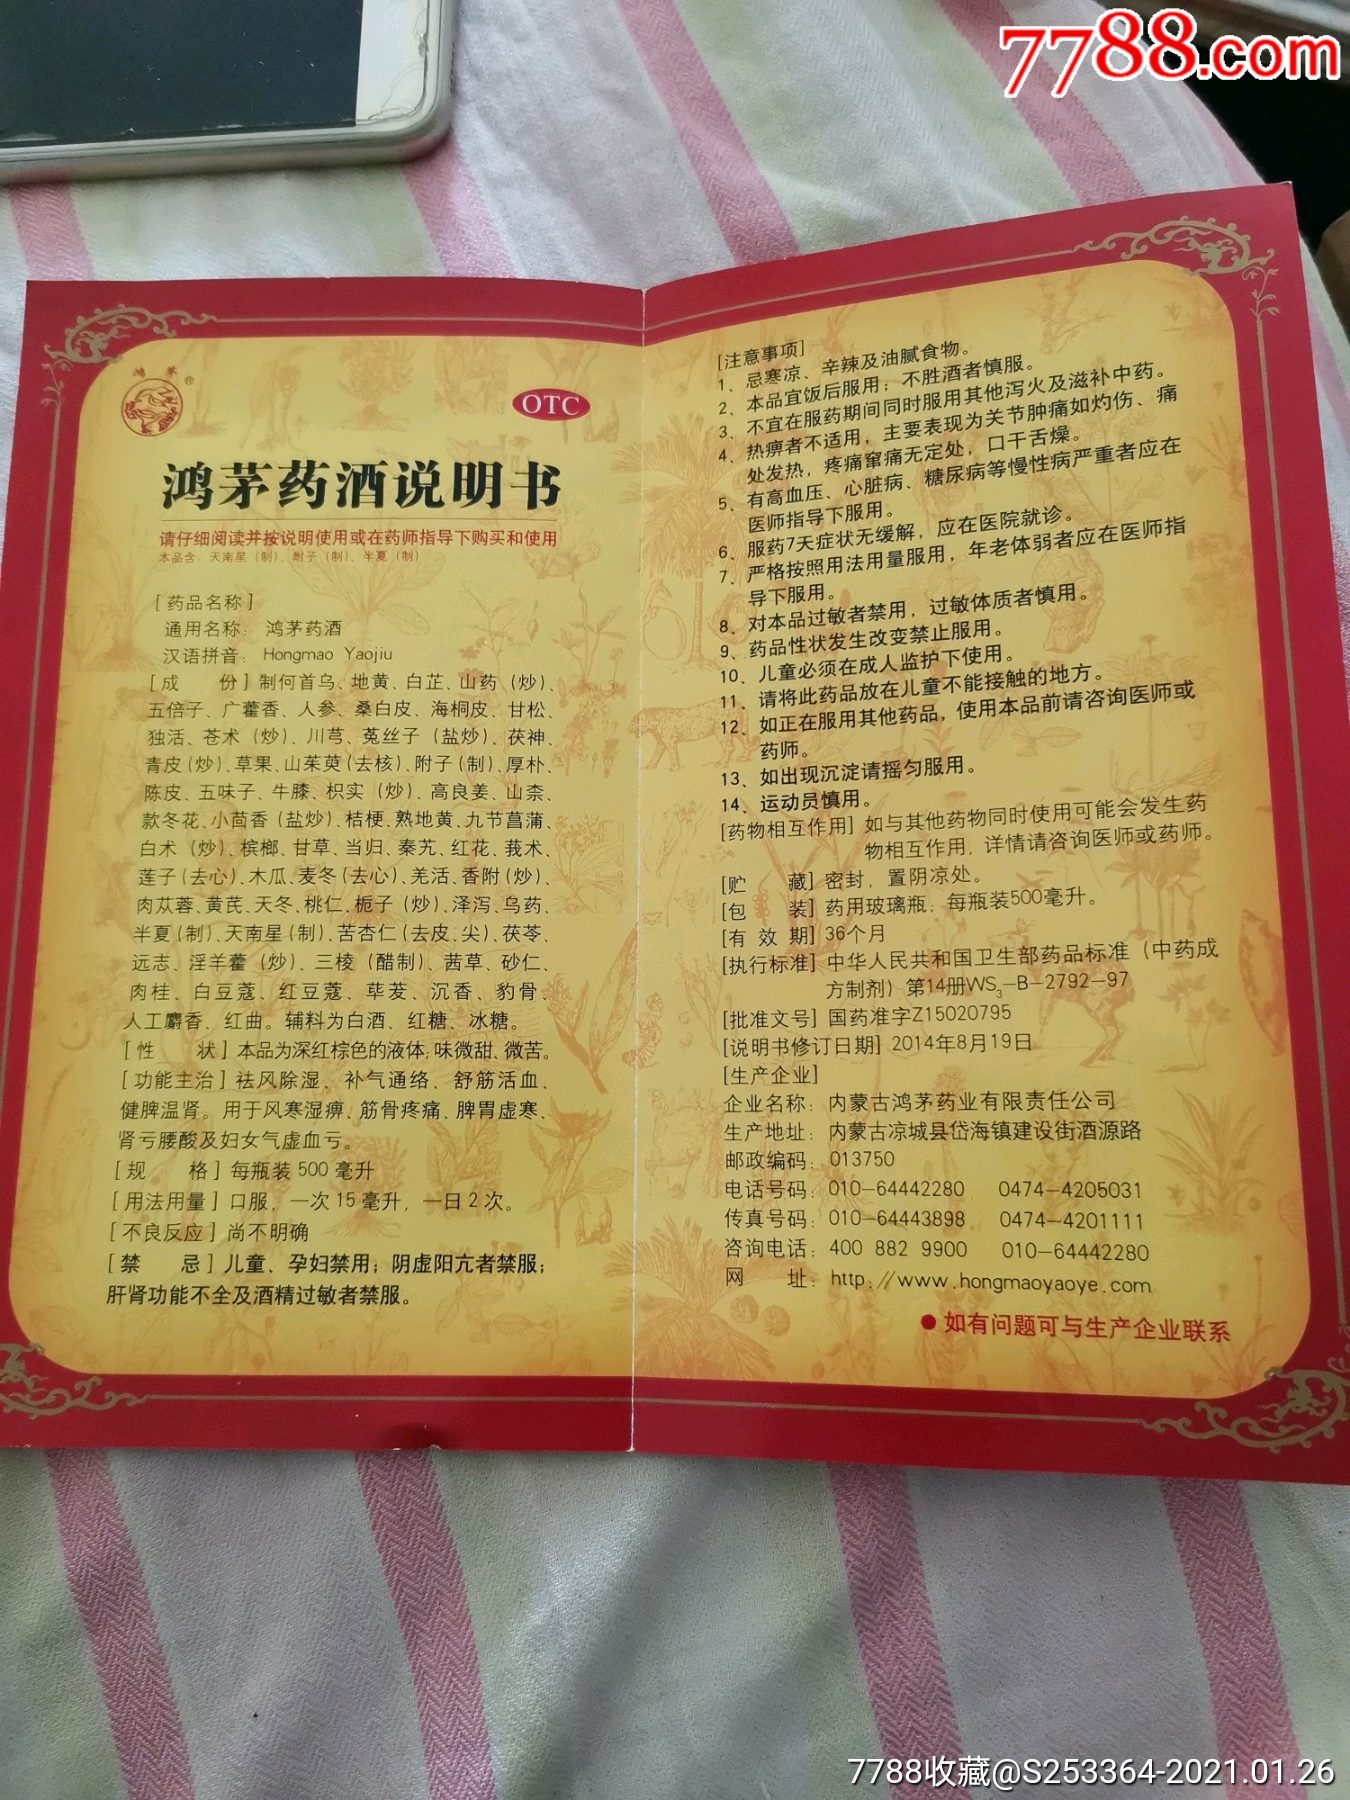 7788.com
鸿茅®
OTC
鸿茅药酒说明书
请仔细阅读并按说明使用或在药师指导下购买和使用
本品含：天南星（制）、附子（制）、半夏（制）
[药品名称]
通用名称：鸿茅药酒
汉语拼音：Hongmao Yaojiu
[成 份]制何首乌、地黄、白芷、山药（炒）、
五倍子、广藿香、人参、桑白皮、海桐皮、甘松、
独活、苍术（炒）、川芎、菟丝子（盐炒）、茯神、
青皮（炒）、草果、山茱萸（去核）、附子（制）、厚朴、
陈皮、五味子、牛膝、枳实（炒）、高良姜、山柰、
款冬花、小茴香（盐炒）、桔梗、熟地黄、九节菖蒲、
白术（炒）、槟榔、甘草、当归、秦艽、红花、莪术、
莲子（去心）、木瓜、麦冬（去心）、羌活、香附（炒）、
肉苁蓉、黄芪、天冬、桃仁、栀子（炒）、泽泻、乌药、
半夏（制）、天南星（制）、苦杏仁（去皮、尖）、茯苓、
远志、淫羊藿（炒）、三棱（醋制）、茜草、砂仁、
肉桂、白豆蔻、红豆蔻、荜茇、沉香、豹骨、
人工麝香、红曲。辅料为白酒、红糖、冰糖。
[性 状]本品为深红棕色的液体；味微甜、微苦。
[功能主治]祛风除湿、补气通络、舒筋活血、
健脾温肾。用于风寒湿痹、筋骨疼痛、脾胃虚寒、
肾亏腰酸及妇女气虚血亏。
[规 格]每瓶装500毫升
[用法用量]口服，一次15毫升，一日2次。
[不良反应]尚不明确
[禁 忌]儿童、孕妇禁用；阴虚阳亢者禁服；
肝肾功能不全及酒精过敏者禁服。
[注意事项]
1、忌寒凉、辛辣及油腻食物。
2、本品宜饭后服用；不胜酒者慎服。
3、不宜在服药期间同时服用其他泻火及滋补中药。
4、热痹者不适用，主要表现为关节肿痛如灼伤、痛
处发热，疼痛窜痛无定处，口干舌燥。
5、有高血压、心脏病、糖尿病等慢性病严重者应在
医师指导下服用。
6、服药7天症状无缓解，应在医院就诊。
7、严格按照用法用量服用，年老体弱者应在医师指
导下服用。
8、对本品过敏者禁用，过敏体质者慎用。
9、药品性状发生改变禁止服用。
10、儿童必须在成人监护下使用。
11、请将此药品放在儿童不能接触的地方。
12、如正在服用其他药品，使用本品前请咨询医师或
药师。
13、如出现沉淀请摇匀服用。
14、运动员慎用。
[药物相互作用]如与其他药物同时使用可能会发生药
物相互作用，详情请咨询医师或药师。
[贮 藏]密封，置阴凉处。
[包 装]药用玻璃瓶；每瓶装500毫升。
[有 效 期]36个月
[执行标准]中华人民共和国卫生部药品标准（中药成
方制剂）第14册WS₃-B-2792-97
[批准文号]国药准字Z15020795
[说明书修订日期]2014年8月19日
[生产企业]
企业名称：内蒙古鸿茅药业有限责任公司
生产地址：内蒙古凉城县岱海镇建设街酒源路
邮政编码：013750
电话号码：010-64442280 0474-4205031
传真号码：010-64443898 0474-4201111
咨询电话：400 882 9900 010-64442280
网 址：http://www.hongmaoyaoye.com
●如有问题可与生产企业联系
7788收藏@S253364-2021.01.26